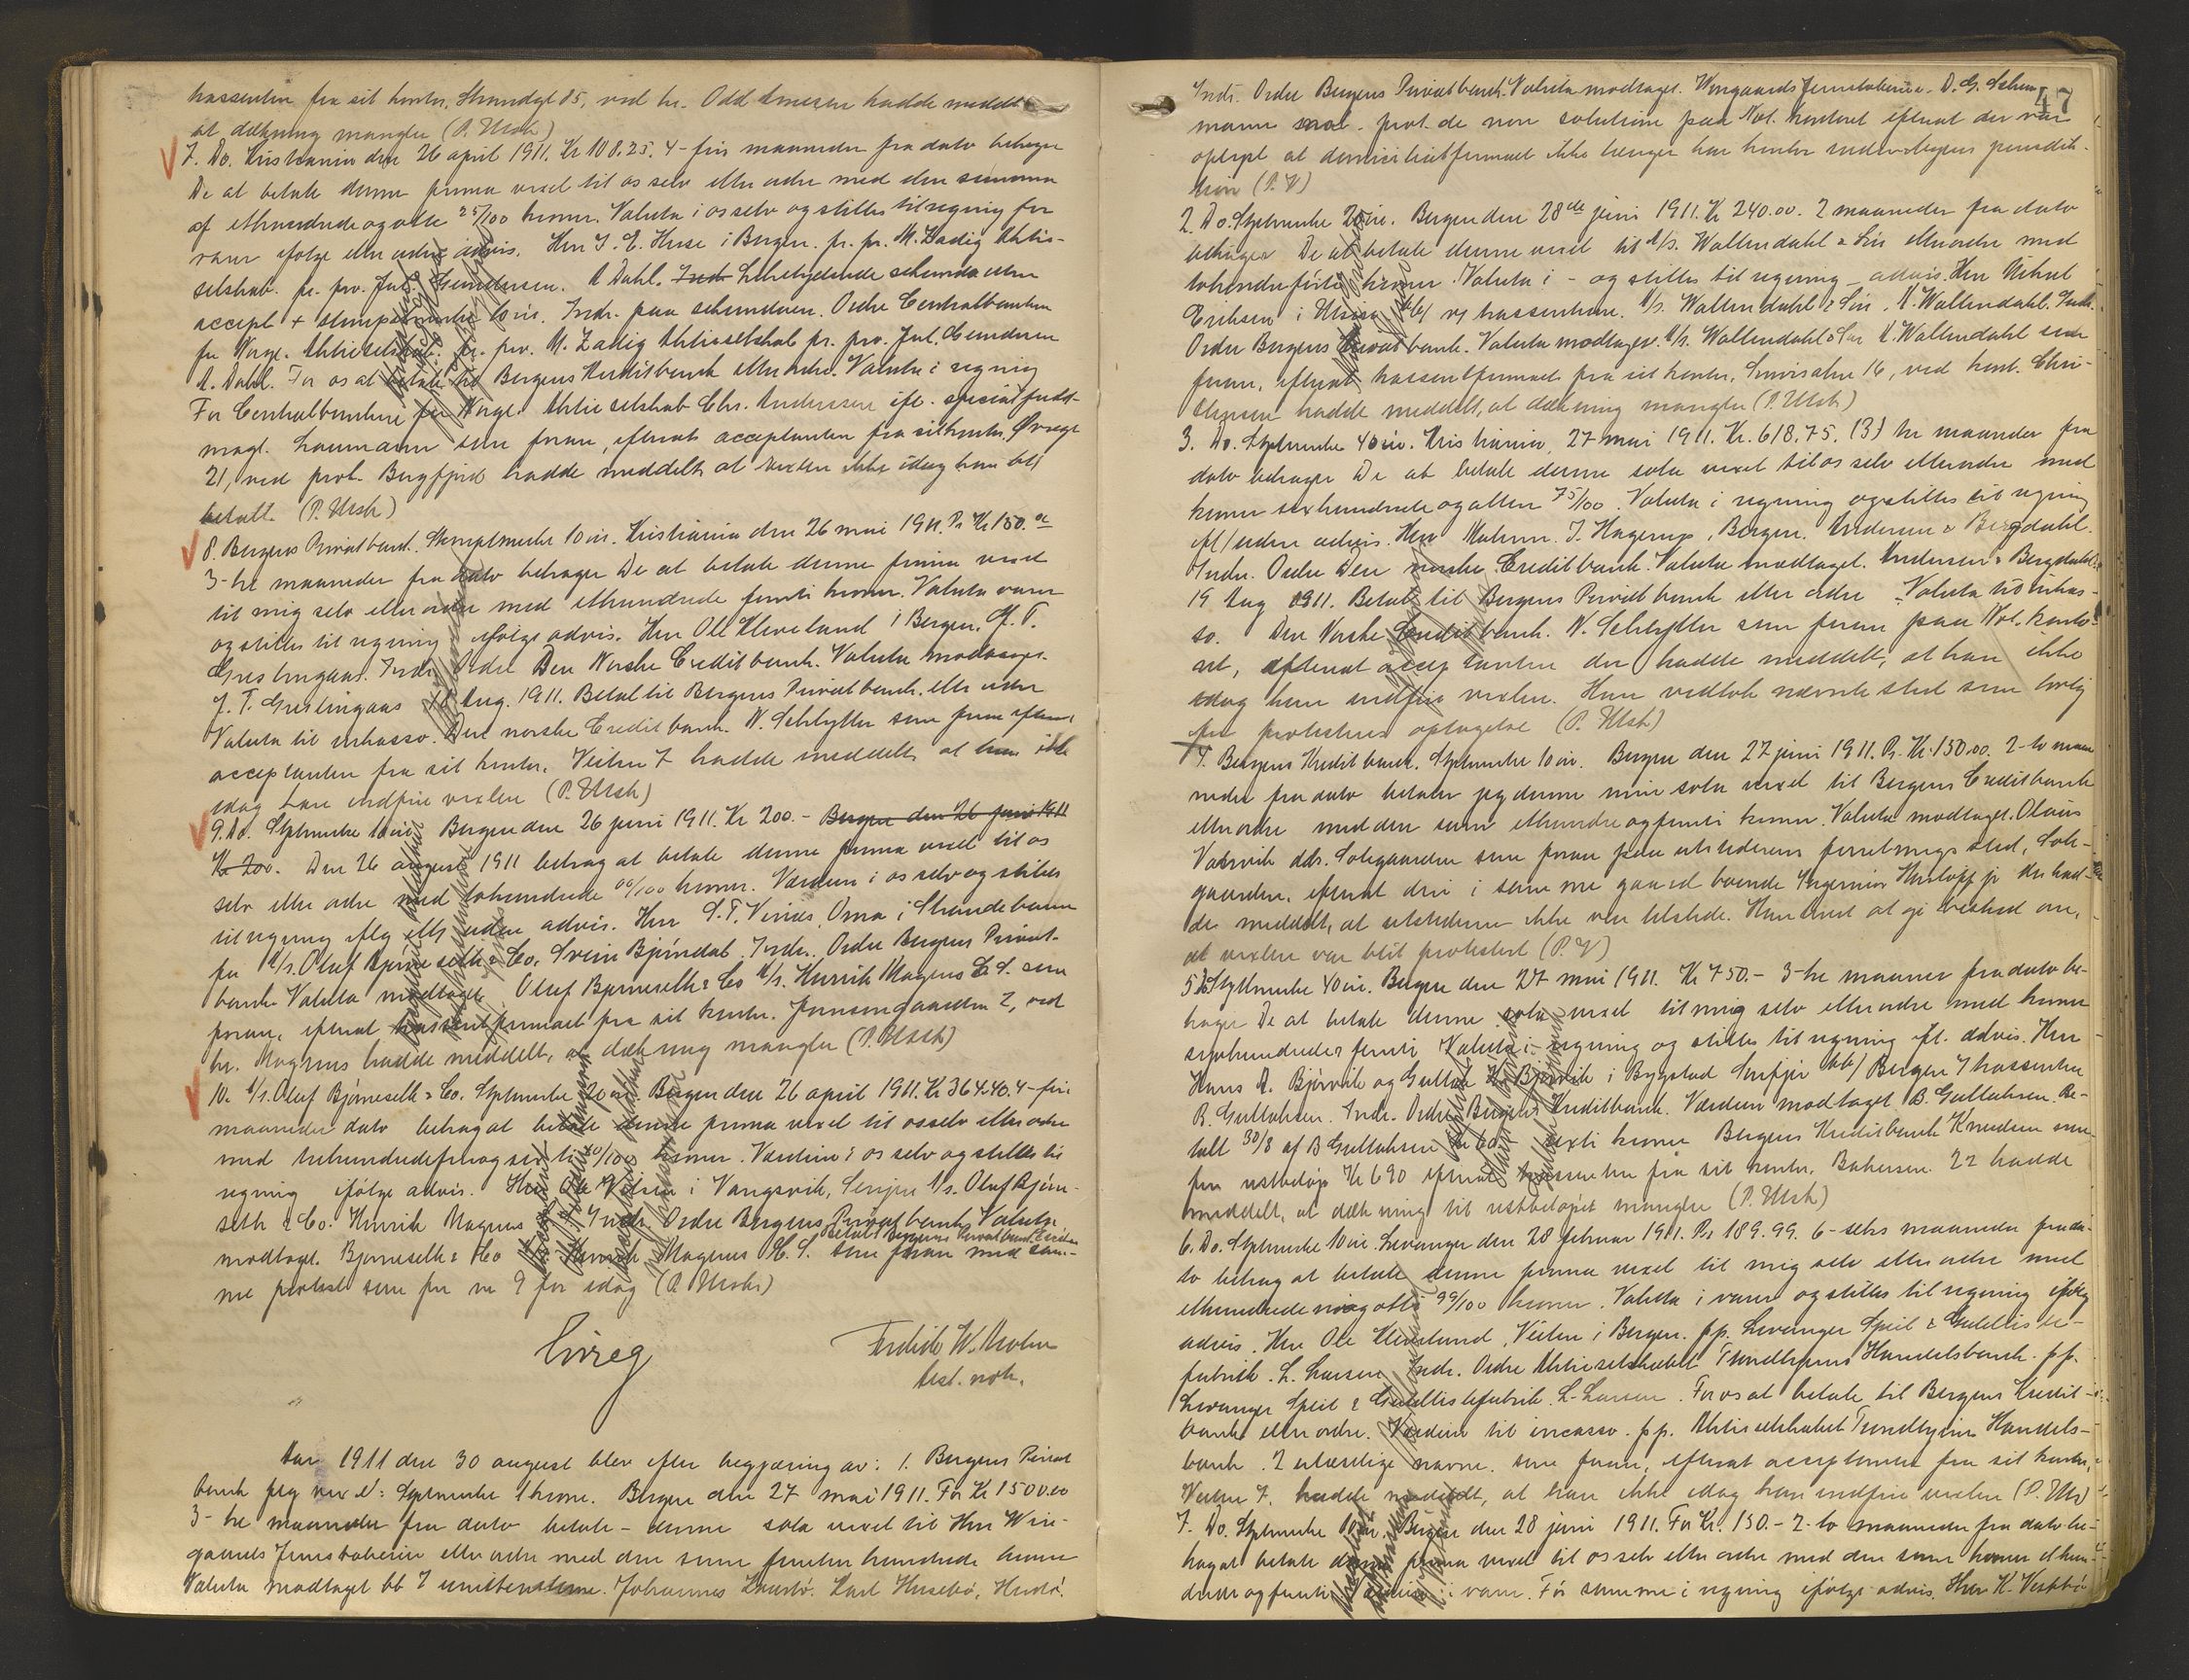 kassenten fra sit kontor, Strandgt 85, ved hr. Odd Arnesen hadde meddelt
at dækning mangler (P. Utsk)
7. Do. Kristiania den 26 april 1911. Kr 108.25. 4-fire maaneder fra dato behager
De at betale denne prima vexel til os selv eller ordre med den summa
af ethundrede og otte 25/100 kroner. Valuta i os selv og stilles til regning for
varer ifølge eller uden advis. Herr J. E. Huse i Bergen. pr. pr. M. Zadig Aktie-
selskab. pr. pro. Jul. Gundersen. A Dahl.
accept + stempelmerke 10 øre. Indr. paa schemaen. Ordre Centralbanken
for Norge. Aktieselskab. pr. pro. M. Zadig Aktieselskab pr. pro. Jul. Gundersen
A. Dahl. For os at betale til Bergens Kreditbank eller ordre. Valuta i regning
For Centralbanken for Norge. Aktieselskab Chr. Anderssen ifl. special fuld-
magt. Laumann som foran, efterat acceptanten fra sit kontor, Øvregt
21, ved prok. Bergfjord hadde meddelt at vexlen ikke idag kan bli
betalt. (P. Utsk)
8. Bergens Privatbank. Stempelmerke 10 øre. Kristiania den 26 mai 1911. Pr Kr 150.00
3-tre maaneder fra dato behager De at betale denne prima vexel
til mig selv eller ordre med ethundrede femti kroner. Valuta varer
og stilles til regning ifølge advis. Herr Ole Kleveland i Bergen.
Indr. Ordre Den Norske Creditbank. Valuta modtaget.
Aug. 1911. Betal til Bergens Privatbank eller ordre
Valuta til inkasso. Den norske Creditbank. N. Schlytter som foran efterat
acceptanten fra sit kontor, Veiten 7 hadde meddelt at han ikke
idag kan indfri vexlen (P. Utsk)
9. Do. Stplmerke 10 øre Bergen den 26 juni 1911. Kr 200.- Bergen den 26 juni 1911
Kr 200. Den 26 august 1911 behag at betale denne prima vexel til os
selv eller ordre med tohundrede 00/100 kroner. Værdien i os selv og stilles
til regning iflg eller uden advis. Herr S. T. Vinæs, Oma i Strandebarm
for A/s. Oluf Bjørneseth & Co. Svein Bjørndal. Indr. Ordre Bergens Privat-
bank Valuta modtaget. Oluf Bjørneseth & Co A/s. Henrik Magnus L. S. som
foran, efterat kassentfirmaet fra sit kontor. Jonsengaarden 2, ved
hr. Magnus hadde meddelt, at dækning mangler (P. Utsk)
10. A/s. Oluf Bjørneseth & Co. Stplmerke 20 øre. Bergen den 26 april 1911. Kr 364.40. 4-fire
maaneder dato behag at betale denne prima vexel til os selv eller ordre
med trehundredefireogsexti 40/100 kroner. Værdien i os selv og stilles til
regning ifølge advis. Herr Ole Vølsen i Vangsvik, Senjen A/s. Oluf Bjørne-
seth & Co. Henrik Magnus Indr. Ordre Bergens Privatbank Valuta
modtaget. Bjørneseth & Co Henrik Magnus L. S. som foran med sam-
me protest som for nr 9 for idag (P. Utsk)
Fredrik W. Mohn
Aar 1911 den 30 august blev efter begjæring av: 1. Bergens Privat
bank flg vexel: Stplmerke 1 krone. Bergen den 27 mai 1911. For Kr 1500.00
3-tre maaneder fra dato betale - denne sola vexel til Herr Win-
gaards Jernstøberi eller ordre med den sum femten hundrede kroner
Valuta modtaget bb 7 Johannes Karl Husebø,
47
Indr. Ordre Bergens Privatbank. Valuta modtaget. Wingaards Jernstøberi. D. G. Schu-
mann prot. de non solutione paa Not. kontoret efterat der var
oplyst at domiciliatfirmaet ikke længer har kontor inden byens jurisdik-
tion (P. V)
2. Do. Stplmerke 20 øre. Bergen den 28de juni 1911. Kr 240.00. 2 maaneder fra dato
behager De at betale denne vexel til A/s. Wallendahl & Søn eller ordre med
tohundreførti kroner. Valuta i - og stilles til regning - advis. Herr Mikal
Eriksen i kassenten. A/s. Wallendahl & Søn. A. Wallendahl. Indr.
Ordre Bergens Privatbank. Valuta modtaget. A/s. Wallendahl & Søn A. Wallendahl som
foran, efterat kassentfirmaet fra sit kontor, 16, ved kont. Chri-
stensen hadde meddelt, at dækning mangler (P. Utsk)
3. Do. Stplmerke 40 øre. Kristiania, 27 mai 1911. Kr. 618.75. (3) tre maaneder fra
dato behager De at betale denne sola vexel til os selv eller ordre med
kroner sexhundrede og atten 75/100. Valuta i regning og stilles til regning
eft/uden advis. Herr Malerm. J. Hagerup, Bergen. Andersen & Bergdahl.
Indr. Ordre Den norske Creditbank. Valuta modtaget. Andersen & Bergdahl.
19 Aug 1911. Betal til Bergens Privatbank eller ordre. Valuta til inkas-
so. Den Norske Creditbank. N. Schlytter som foran paa Not. konto-
ret, efterat acceptanten der hadde meddelt, at han ikke
idag kan indfri vexlen. Han vedtok nævnte sted som lovlig
for protestens optagelse (P. Utsk)
4. Bergens Kreditbank. Stplmerke 10 øre. Bergen den 27 juni 1911. Pr. Kr. 150.00. 2-to maa-
neder fra dato betaler jeg denne min sola vexel til Bergens Creditbank
eller ordre med den sum ethundre og femti kroner. Valuta modtaget. Olaus
Vatsvik adr. Solegaarden som foran paa utstederens forretningssted, Sole-
gaarden, efterat den i samme gaard boende Ingeniør jr der had-
de meddelt, at utstederen ikke var tilstede. Han lovet at gi besked om,
at vexlen var blit protestert (P. V)
5. Stplmerke 40 øre. Bergen den 27 mai 1911. Kr 750.- 3-tre maaneder fra dato be-
hager De at betale denne sola vexel til mig selv eller ordre med kroner
syvhundrede femti Valuta i regning og stilles til regning efl. advis. Herr
Hans A. Bjørvik og Gullak H. Bjørvik i Bygstad Søndfjor bb/ Bergen 7 kassenten
B. Gullaksen. Indr. Ordre Bergens Kreditbank. Værdien modtaget B. Gullaksen. Be-
talt 30/8 af B Gullaksen kr 60.- sexti kroner Bergens Kreditbank Knudsen som
for restbeløp Kr 690 efterat kassenten fra sit kontor, 22 hadde
meddelt, at dækning til restbeløpet mangler (P. Utsk)
6. Do. Stplmerke 10 øre. Levanger den 28 februar 1911. Pr 189.99. 6-seks maaneder fra da-
to behag at betale denne prima vexel til mig selv eller ordre med
ethundrede niogotti 99/100 kroner. Valuta i varer og stilles til regning ifølg
advis. Herr Ole Kleveland, Veiten i Bergen. pp. Levanger Speil & Guldliste-
fabrik. L. Larsen. Indr. Ordre Aktieselskabet Trondhjems Handelsbank. pp.
Levanger Speil & Guldlistefabrik. L. Larsen. For os at betale til Bergens Kredit-
bank eller ordre. Værdien til incasso. pp. Aktieselskabet Trondhjems Handels-
bank. 2 ulæselige navne. som foran, efterat acceptanten fra sit kontor,
Veiten 7. hadde meddelt, at han ikke idag kan indfri vexlen (P. Uts)
7. Do. Stplmerke 10 øre. Bergen den 28 juni 1911. For Kr. 150.- 2-to maaneder fra dato be-
hag at betale denne prima vexel til os selv eller ordre med den sum kroner ethun-
drede og femti i varer. Før summe i regning ifølge advis. Herr K.